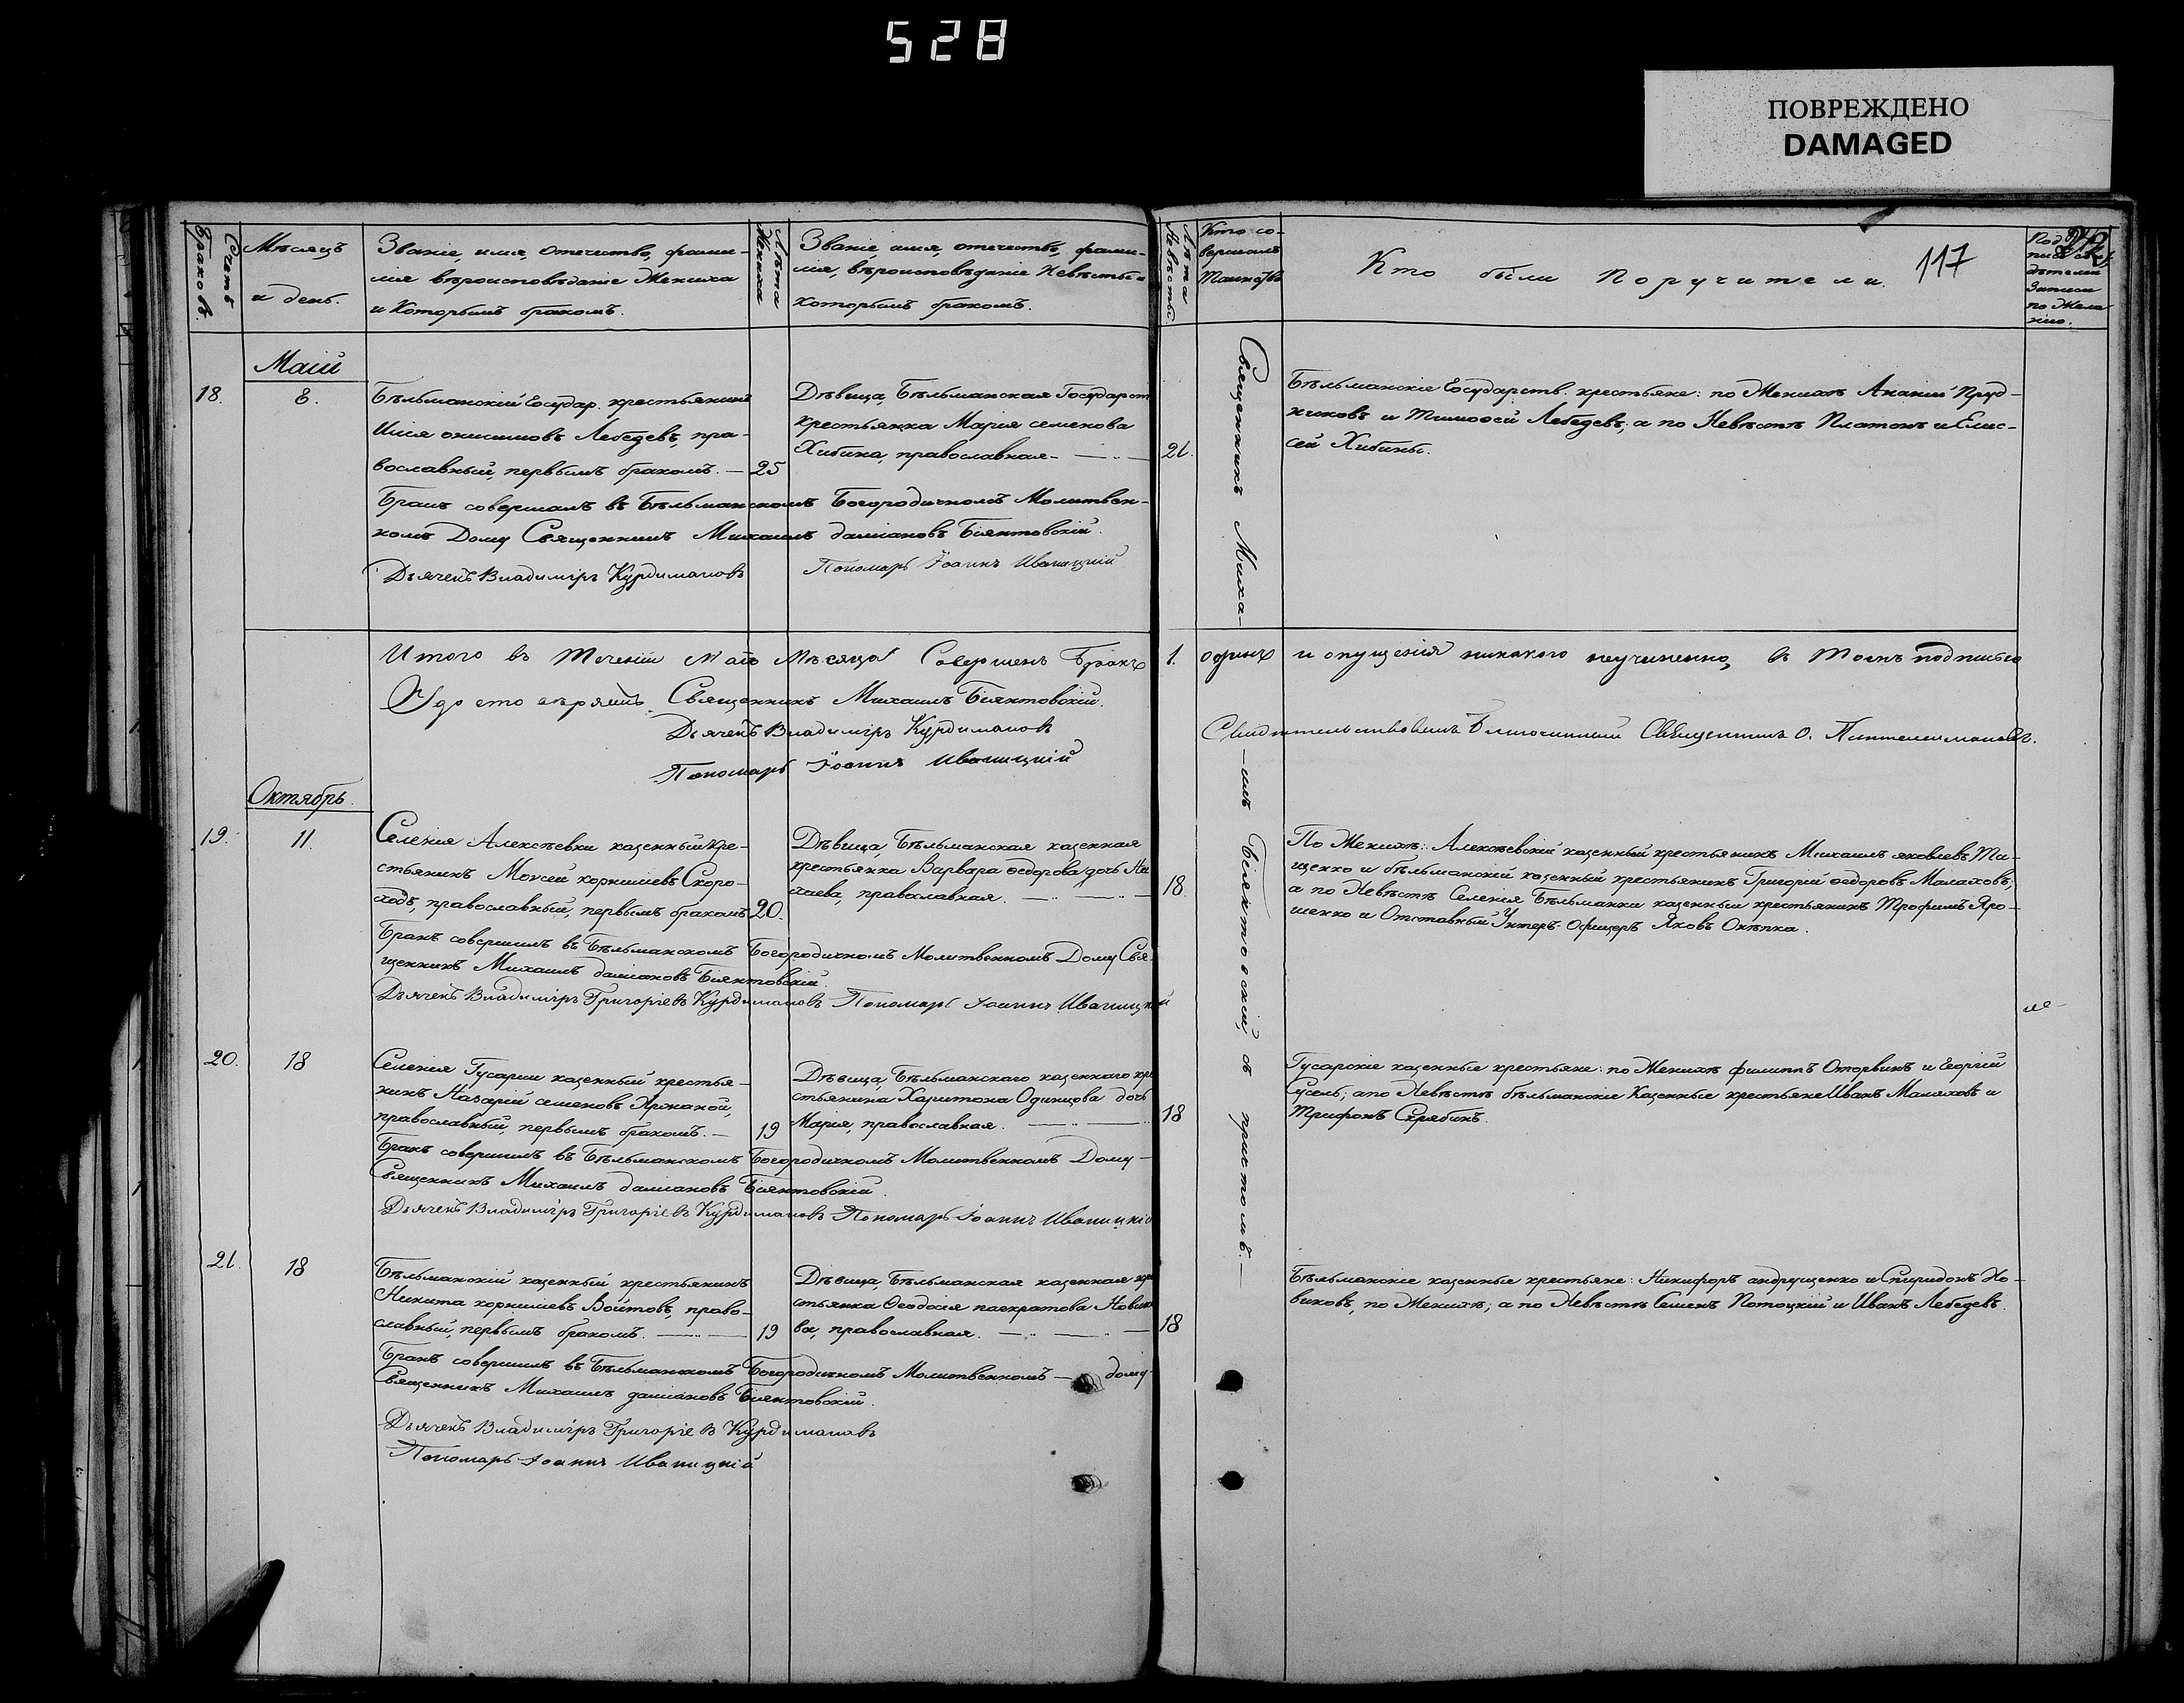 528
ПОВРЕЖДЕНО
DAMAGED
Счетъ Браковъ.
Мѣсяцъ и день.
Званіе, имя, отечество, фами-
лія вѣроисповѣданіе Жениха
и Которымъ бракомъ.
Лѣта Жениха
Званіе, имя, отечество, фами-
лія, вѣроисповѣданіе Невѣсты и
которымъ бракомъ.
Лѣта Невѣсты.
Кто со-
вершалъ
Таинство
Кто были Поручители.
117
дѣтелей
Записи
по Жела
нію.
Маій
18.
8.
Бѣльманскій Государ. крестьянинъ
Илія онисимовъ Лебедевъ, пра-
вославный, первымъ бракомъ. — 25
Дѣвица, Бѣльманская Государст
крестьянка Марія семенова
Хибина, православная —
21.
Бѣльманскіе Государств. крестьяне: по Женихѣ Ананій Пруд-
никовъ и Тимофей Лебедевъ; а по Невѣстѣ Платонъ и Елис-
сей Хибины.
Бракъ совершалъ въ Бѣльманскомъ Богородичномъ Молитвен-
номъ Дому Священникъ Михаилъ даміановъ Біянтовскій.
Дьячекъ Владиміръ Курдимановъ
Пономарь Іоаннъ Иваницкій
Священникъ Миха-
-илъ Біянтовскій, съ причтомъ. —
Итого въ теченіи Маія Мѣсяца Совершенъ Бракъ 1. одинъ и опущенія никакого неучиненно, въ томъ подписью
Удостовѣряемъ. Священникъ Михаилъ Біянтовскій.
Дьячекъ Владиміръ Курдимановъ
Пономарь Іоаннъ Иваницкій
Свидѣтельствовалъ Благочинный Священникъ
Октябрь.
19.
11.
Селенія Алексѣевки казенный кре-
стьянинъ Моисей корниліевъ Скоро-
ходъ, православный, первымъ бракомъ 20.
Дѣвица, Бѣльманская казенная
крестьянка Варвара федорова дочь Не
чаева, православная. —
18
По Женихѣ: Алексѣевскій казенный крестьянинъ Михаилъ яковлевъ Та-
щенко и бѣльманскій казенный крестьянинъ Григорій федоровъ Малаховъ;
а по Невѣстѣ Селенія Бѣльманки казенный крестьянинъ Трофимъ Яро-
шенко и Отставный Унтеръ-Офицеръ Яковъ Окѣпка.
Бракъ совершилъ въ Бѣльманскомъ Богородичномъ Молитвенномъ Дому Свя-
щенникъ Михаилъ даміановъ Біянтовскій.
Дьячекъ Владиміръ Григоріевъ Курдимановъ Пономарь Іоаннъ Иваницкій
20.
18
Селенія Гусарки казенный крестья-
нинъ Назарій семеновъ Хржаной,
православный, первымъ бракомъ. — 19
Дѣвица, Бѣльманскаго казеннаго кре
стьянина Харитона Одинцова дочь
Марія, православная. —
18
Гусарскіе казенные крестьяне: по Женихѣ филиппъ Оторвинъ и Георгій
Сусень; а по Невѣстѣ бѣльманскіе Казенные крестьяне Иванъ Малаховъ и
Трифонъ Скрябинъ.
Бракъ совершилъ въ Бѣльманскомъ Богородичномъ Молитвенномъ Дому —
Священникъ Михаилъ даміановъ Біянтовскій.
Дьячекъ Владиміръ Григоріевъ Курдимановъ Пономарь Іоаннъ Иваницкій
21.
18
Бѣльманскій казенный крестьянинъ
Никита корниліевъ Войтовъ, право-
славный, первымъ бракомъ. — 19
Дѣвица, Бѣльманская казенная кре
стьянка Феодосія панкратова Новико
ва, православная. —
18
Бѣльманскіе казенные крестьяне: Никифоръ андрущенко и Спиридонъ Но-
виковъ, по Женихѣ; а по Невѣстѣ Семенъ Потоцкій и Иванъ Лебедевъ.
Бракъ совершилъ въ Бѣльманскомъ Богородичномъ Молитвенномъ — дому
Священникъ Михаилъ даміановъ Біянтовскій.
Дьячекъ Владиміръ Григоріевъ Курдимановъ
Пономарь Іоаннъ Иваницкій